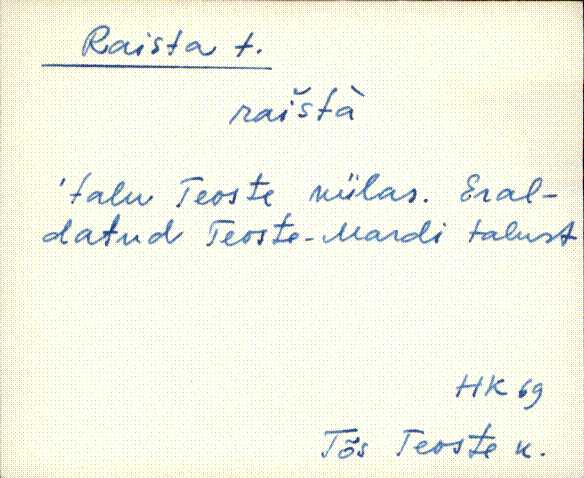 Raista t.
raištà
'talu Teoste külas. Eral-
datud Teoste-Mardi talust
HK 69
Tõs Teoste k.